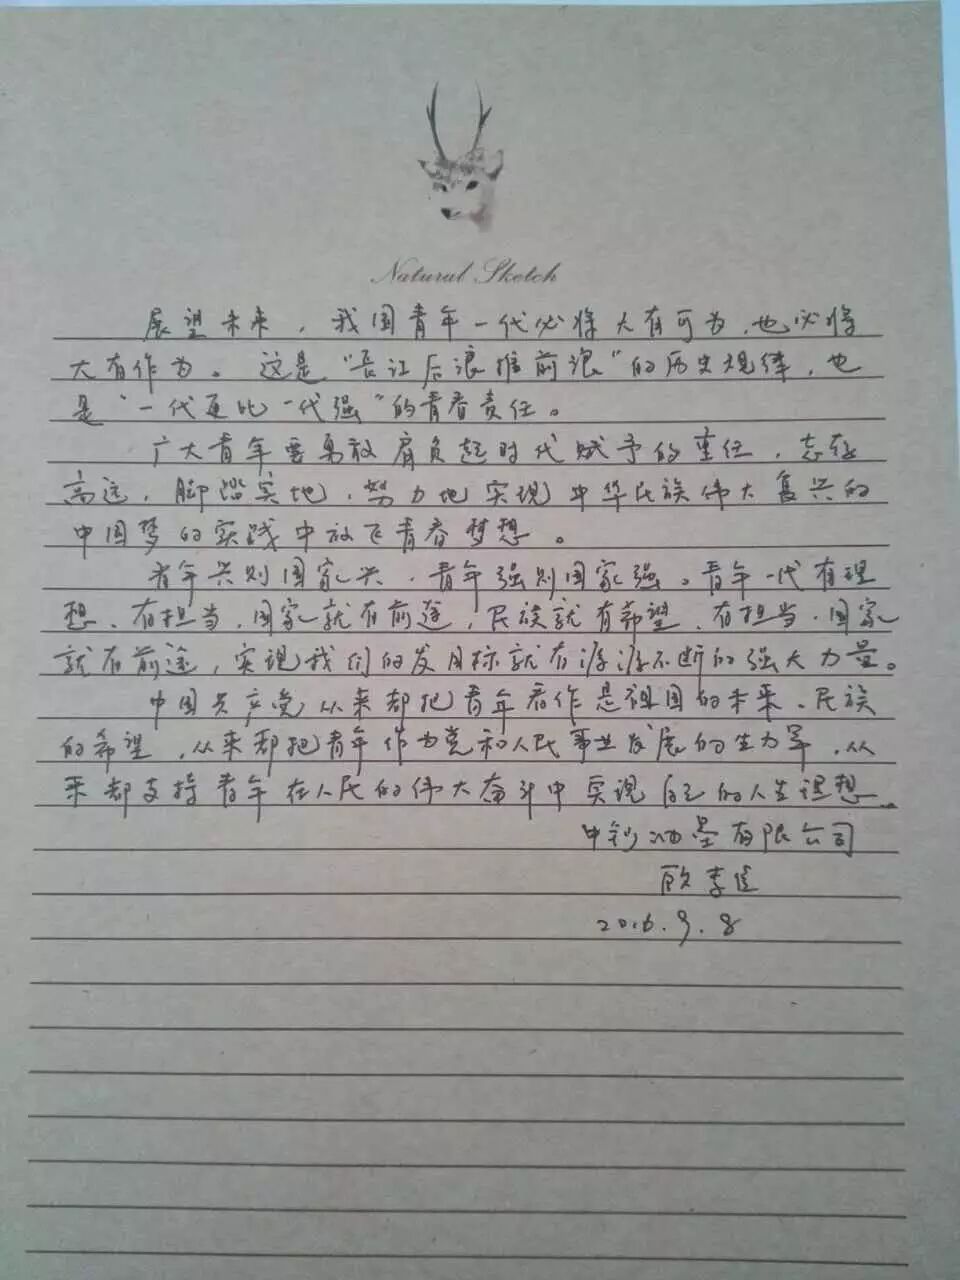 Natural Sketch
展望未来，我国青年一代必将大有可为，也必将
大有作为。这是“长江后浪推前浪”的历史规律，也
是“一代更比一代强”的青春责任。
广大青年要勇敢肩负起时代赋予的重任，志存
高远，脚踏实地，努力地实现中华民族伟大复兴的
中国梦的实践中放飞青春梦想。
青年兴则国家兴，青年强则国家强。青年一代有理
想、有担当，国家就有前途，民族就有希望，有担当，国家
就有前途，实现我们的发目标就有源源不断的强大力量。
中国共产党从来都把青年看作是祖国的未来、民族
的希望，从来都把青年作为党和人民事业发展的生力军，从
来都支持青年在人民的伟大奋斗中实现自己的人生理想。
中钞油墨有限公司
2016.9.8